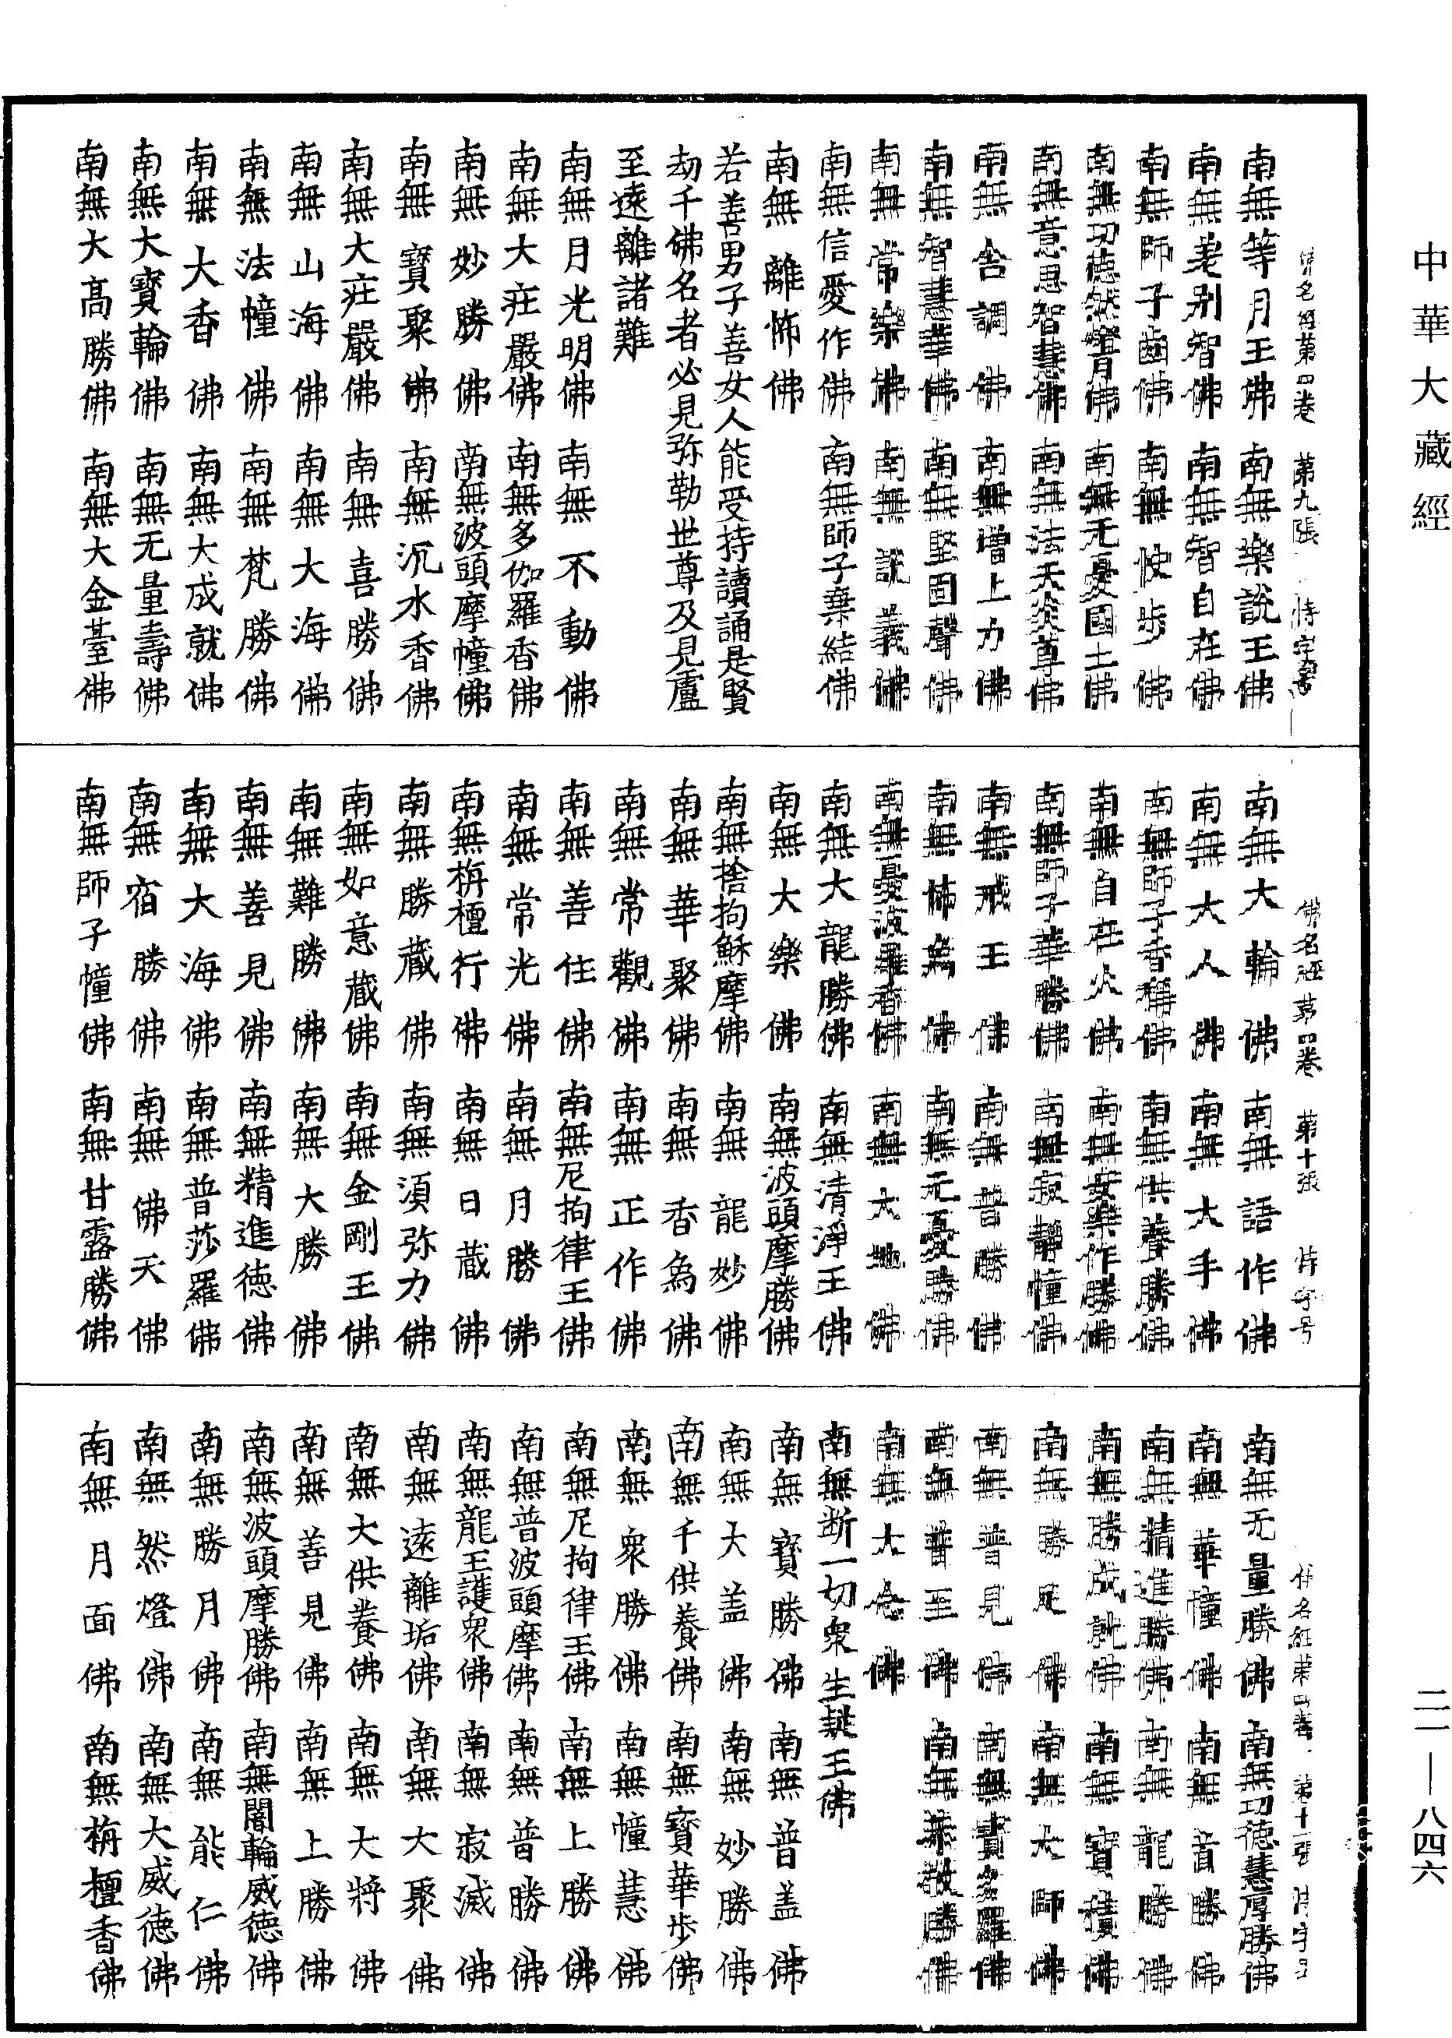 中華大藏經
二一—八四六
佛名經第四卷 第九張 恃字號
南無等月王佛 南無樂說王佛
南無差別智佛 南無智自在佛
南無師子齒佛 南無快步佛
南無功德然燈佛 南無无憂國土佛
南無意思智慧佛 南無法天炎尊佛
南無舍調佛 南無增上力佛
南無智慧華佛 南無堅固聲佛
南無常樂佛 南無說義佛
南無信愛作佛 南無師子棄結佛
南無離怖佛
若善男子善女人能受持讀誦是賢
劫千佛名者必見弥勒世尊及見盧
至遠離諸難
南無月光明佛 南無不動佛
南無大莊嚴佛 南無多伽羅香佛
南無妙勝佛 南無波頭摩幢佛
南無寶聚佛 南無沉水香佛
南無大莊嚴佛 南無喜勝佛
南無山海佛 南無大海佛
南無法幢佛 南無梵勝佛
南無大香佛 南無大成就佛
南無大寶輪佛 南無无量壽佛
南無大高勝佛 南無大金臺佛
佛名經第四卷 第十張 恃字号
南無大輪佛 南無語作佛
南無大人佛 南無大手佛
南無師子香稱佛 南無供養勝佛
南無自在火佛 南無安樂作勝佛
南無師子華勝佛 南無寂靜幢佛
南無戒王佛 南無普勝佛
南無怖為佛 南無无憂勝佛
南無憂波羅香佛 南無大地佛
南無大龍勝佛 南無清淨王佛
南無大樂佛 南無波頭摩勝佛
南無捨拘穌摩佛 南無龍妙佛
南無華聚佛 南無香為佛
南無常觀佛 南無正作佛
南無善住佛 南無尼拘律王佛
南無常光佛 南無月勝佛
南無栴檀行佛 南無日藏佛
南無勝藏佛 南無須弥力佛
南無如意藏佛 南無金剛王佛
南無難勝佛 南無大勝佛
南無善見佛 南無精進德佛
南無大海佛 南無普莎羅佛
南無宿勝佛 南無佛天佛
南無師子幢佛 南無甘露勝佛
佛名經第四卷 第十一張 恃字号
南無无量勝佛 南無功德慧厚勝佛
南無華幢佛 南無音勝佛
南無精進勝佛 南無龍勝佛
南無勝成就佛 南無寶積佛
南無勝足佛 南無大師佛
南無普見佛 南無賣多羅佛
南無普至佛 南無恭敬勝佛
南無大念佛
南無断一切衆生疑王佛
南無寶勝佛 南無普盖佛
南無大盖佛 南無妙勝佛
南無千供養佛 南無寶華步佛
南無衆勝佛 南無幢慧佛
南無尼拘律王佛 南無上勝佛
南無普波頭摩佛 南無普勝佛
南無龍王護衆佛 南無寂滅佛
南無遠離垢佛 南無大聚佛
南無大供養佛 南無大將佛
南無善見佛 南無上勝佛
南無波頭摩勝佛 南無闍輪威德佛
南無勝月佛 南無能仁佛
南無然燈佛 南無大威德佛
南無月面佛 南無栴檀香佛